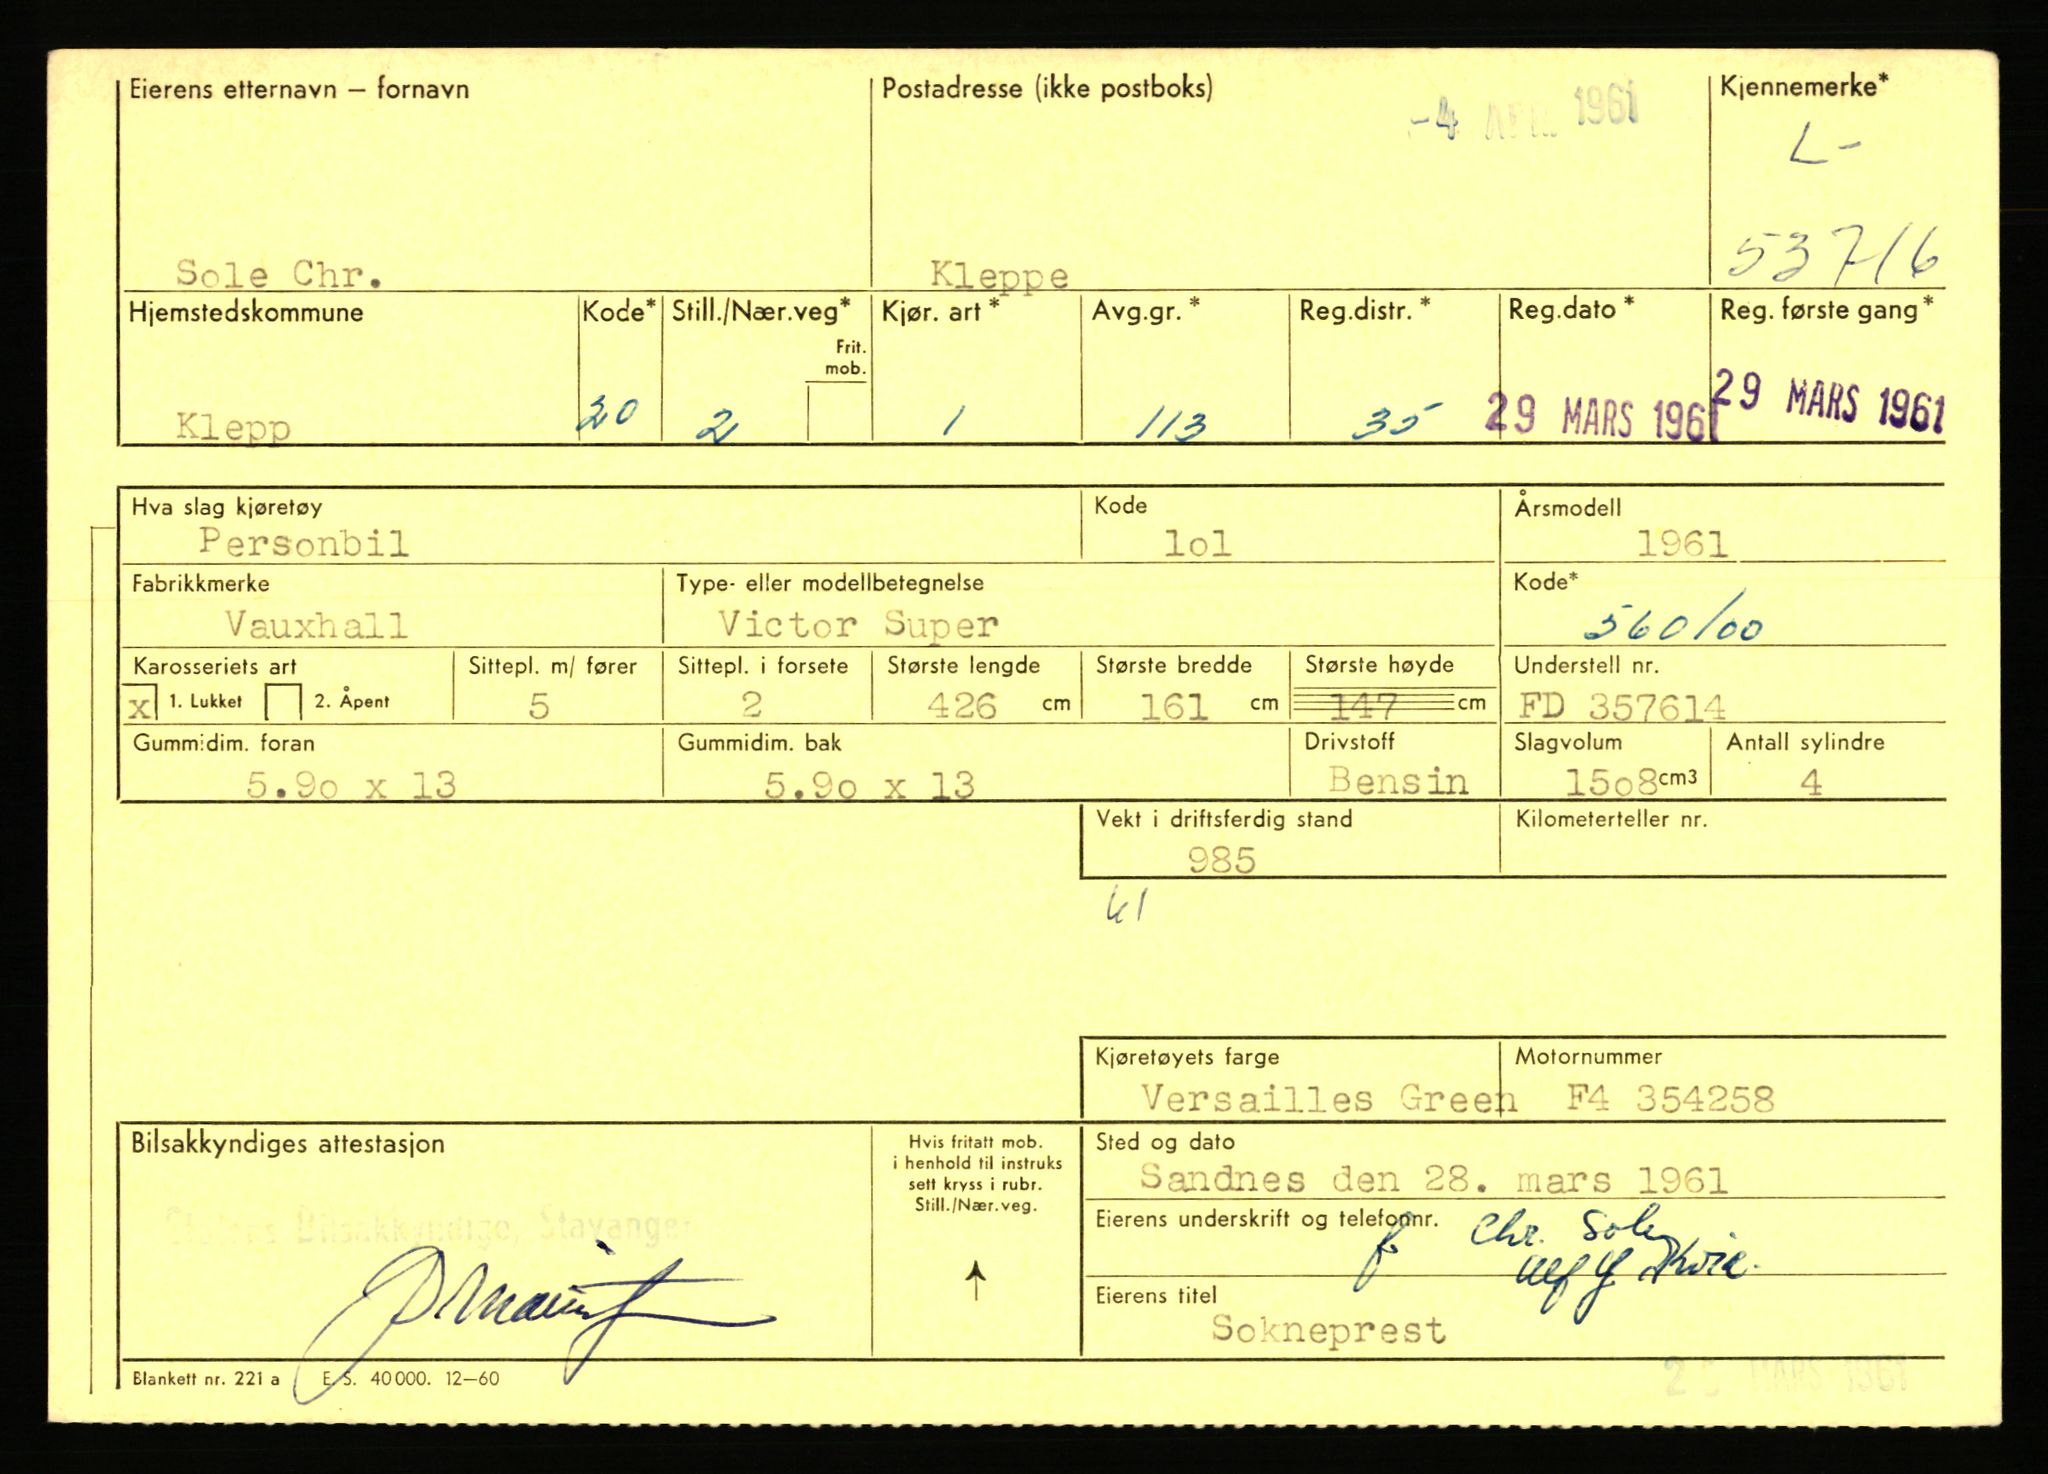 Eierens etternavn – fornavn Postadresse (ikke postboks) Kjennemerke*
-4 1961
L-
Sole Chr. Kleppe 53716
Hjemstedskommune Kode* Still./Nær.veg* Kjør. art* Avg.gr.* Reg.distr.* Reg.dato* Reg. første gang*
Frit.
mob.
Klepp 20 2 1 113 35 29 MARS 1961 29 MARS 1961
Hva slag kjøretøy Kode Årsmodell
Personbil lol 1961
Fabrikkmerke Type- eller modellbetegnelse Kode*
Vauxhall Victor Super 560/00
Karosseriets art Sittepl. m/ fører Sittepl. i forsete Største lengde Største bredde Største høyde Understell nr.
x 1. Lukket 2. Åpent 5 2 426 cm 161 cm 147 cm FD 357614
Gummidim. foran Gummidim. bak Drivstoff Slagvolum Antall sylindre
5.9o x 13 5.9o x 13 Bensin 15o8 cm3 4
Vekt i driftsferdig stand Kilometerteller nr.
985
61
Kjøretøyets farge Motornummer
Versailles Green F4 354258
Bilsakkyndiges attestasjon Hvis fritatt mob. i henhold til instruks sett kryss i rubr. Still./Nær.veg. Sted og dato
Sandnes den 28. mars 1961
Statens Bilsakkyndige, Stavanger
Eierens underskrift og telefonnr. f. Chr. Sole
Alf G Kvia.
Eierens titel
Sokneprest
MARS 1961
Blankett nr. 221 a E. S. 40 000. 12–60